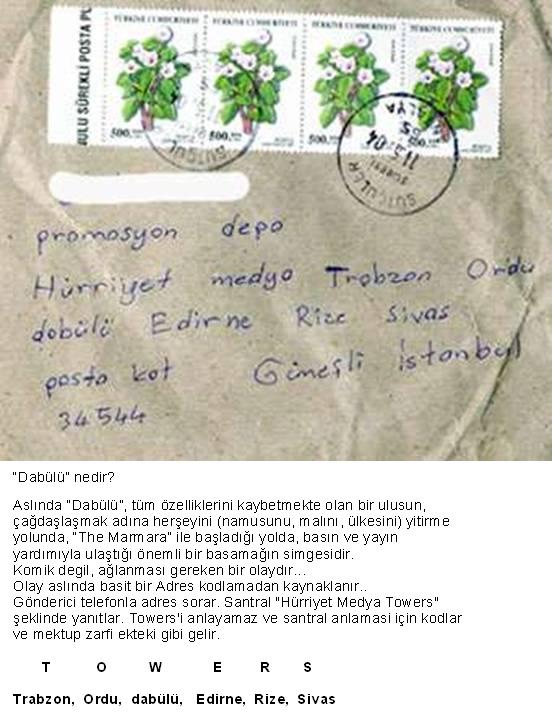 TÜRKİYE CUMHURİYETİ TÜRKİYE CUMHURİYETİ TÜRKİYE CUMHURİYETİ TÜRKİYE CUMHURİYETİ
ULU SÜREKLİ POSTA PU
500. 500. 500. 500.
SÜTÇÜLER
11.3.04
SÜTÇÜLER
promosyon depo
Hürriyet medya Trabzon Ordu
dabülü Edirne Rize Sivas
posta kot Güneşli İstanbul
34544
"Dabülü" nedir?
Aslında "Dabülü", tüm özelliklerini kaybetmekte olan bir ulusun,
çağdaşlaşmak adına herşeyini (namusunu, malını, ülkesini) yitirme
yolunda, "The Marmara" ile başladığı yolda, basın ve yayın
yardımıyla ulaştığı önemli bir basamağın simgesidir.
Komik değil, ağlanması gereken bir olaydır...
Olay aslında basit bir Adres kodlamadan kaynaklanır..
Gönderici telefonla adres sorar. Santral "Hürriyet Medya Towers"
şeklinde yanıtlar. Towers'i anlayamaz ve santral anlaması için kodlar
ve mektup zarfi ekteki gibi gelir.
T O W E R S
Trabzon, Ordu, dabülü, Edirne, Rize, Sivas